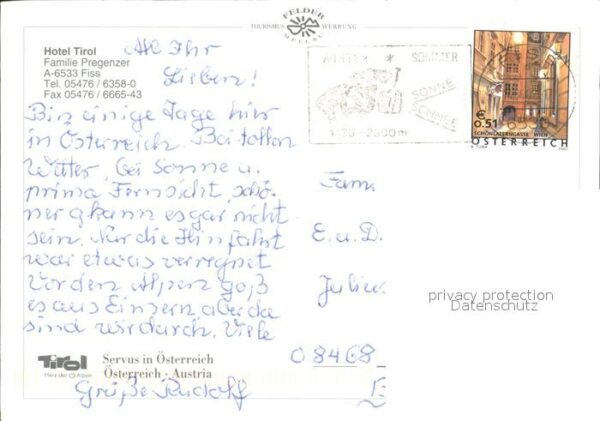 FELDER
TOURISMUS WERBUNG
MELLAU
Hotel Tirol
Familie Pregenzer
A-6533 Fiss
Tel. 05476 / 6358-0
Fax 05476 / 6665-43
All Ihr
Lieben!
Bin einige Tage hier
in Österreich. Bei tollen
Wetter, bei Sonne u.
prima Fernsicht, schö-
ner kann es gar nicht
sein. Nur die Hinfahrt
war etwas verregnet
Vor den Alpen goß
es aus Eimern aber da
sind wir durch. Viele
Grüße Rudolf
WINTER * SOMMER
SONNE
2000 m
€ 0.51
SCHÖNLATERNGASSE WIEN
ÖSTERREICH
Fam.
E. u. D.
Julier
08468
privacy protection
Datenschutz
Tirol
Herz der Alpen
Servus in Österreich
Österreich · Austria